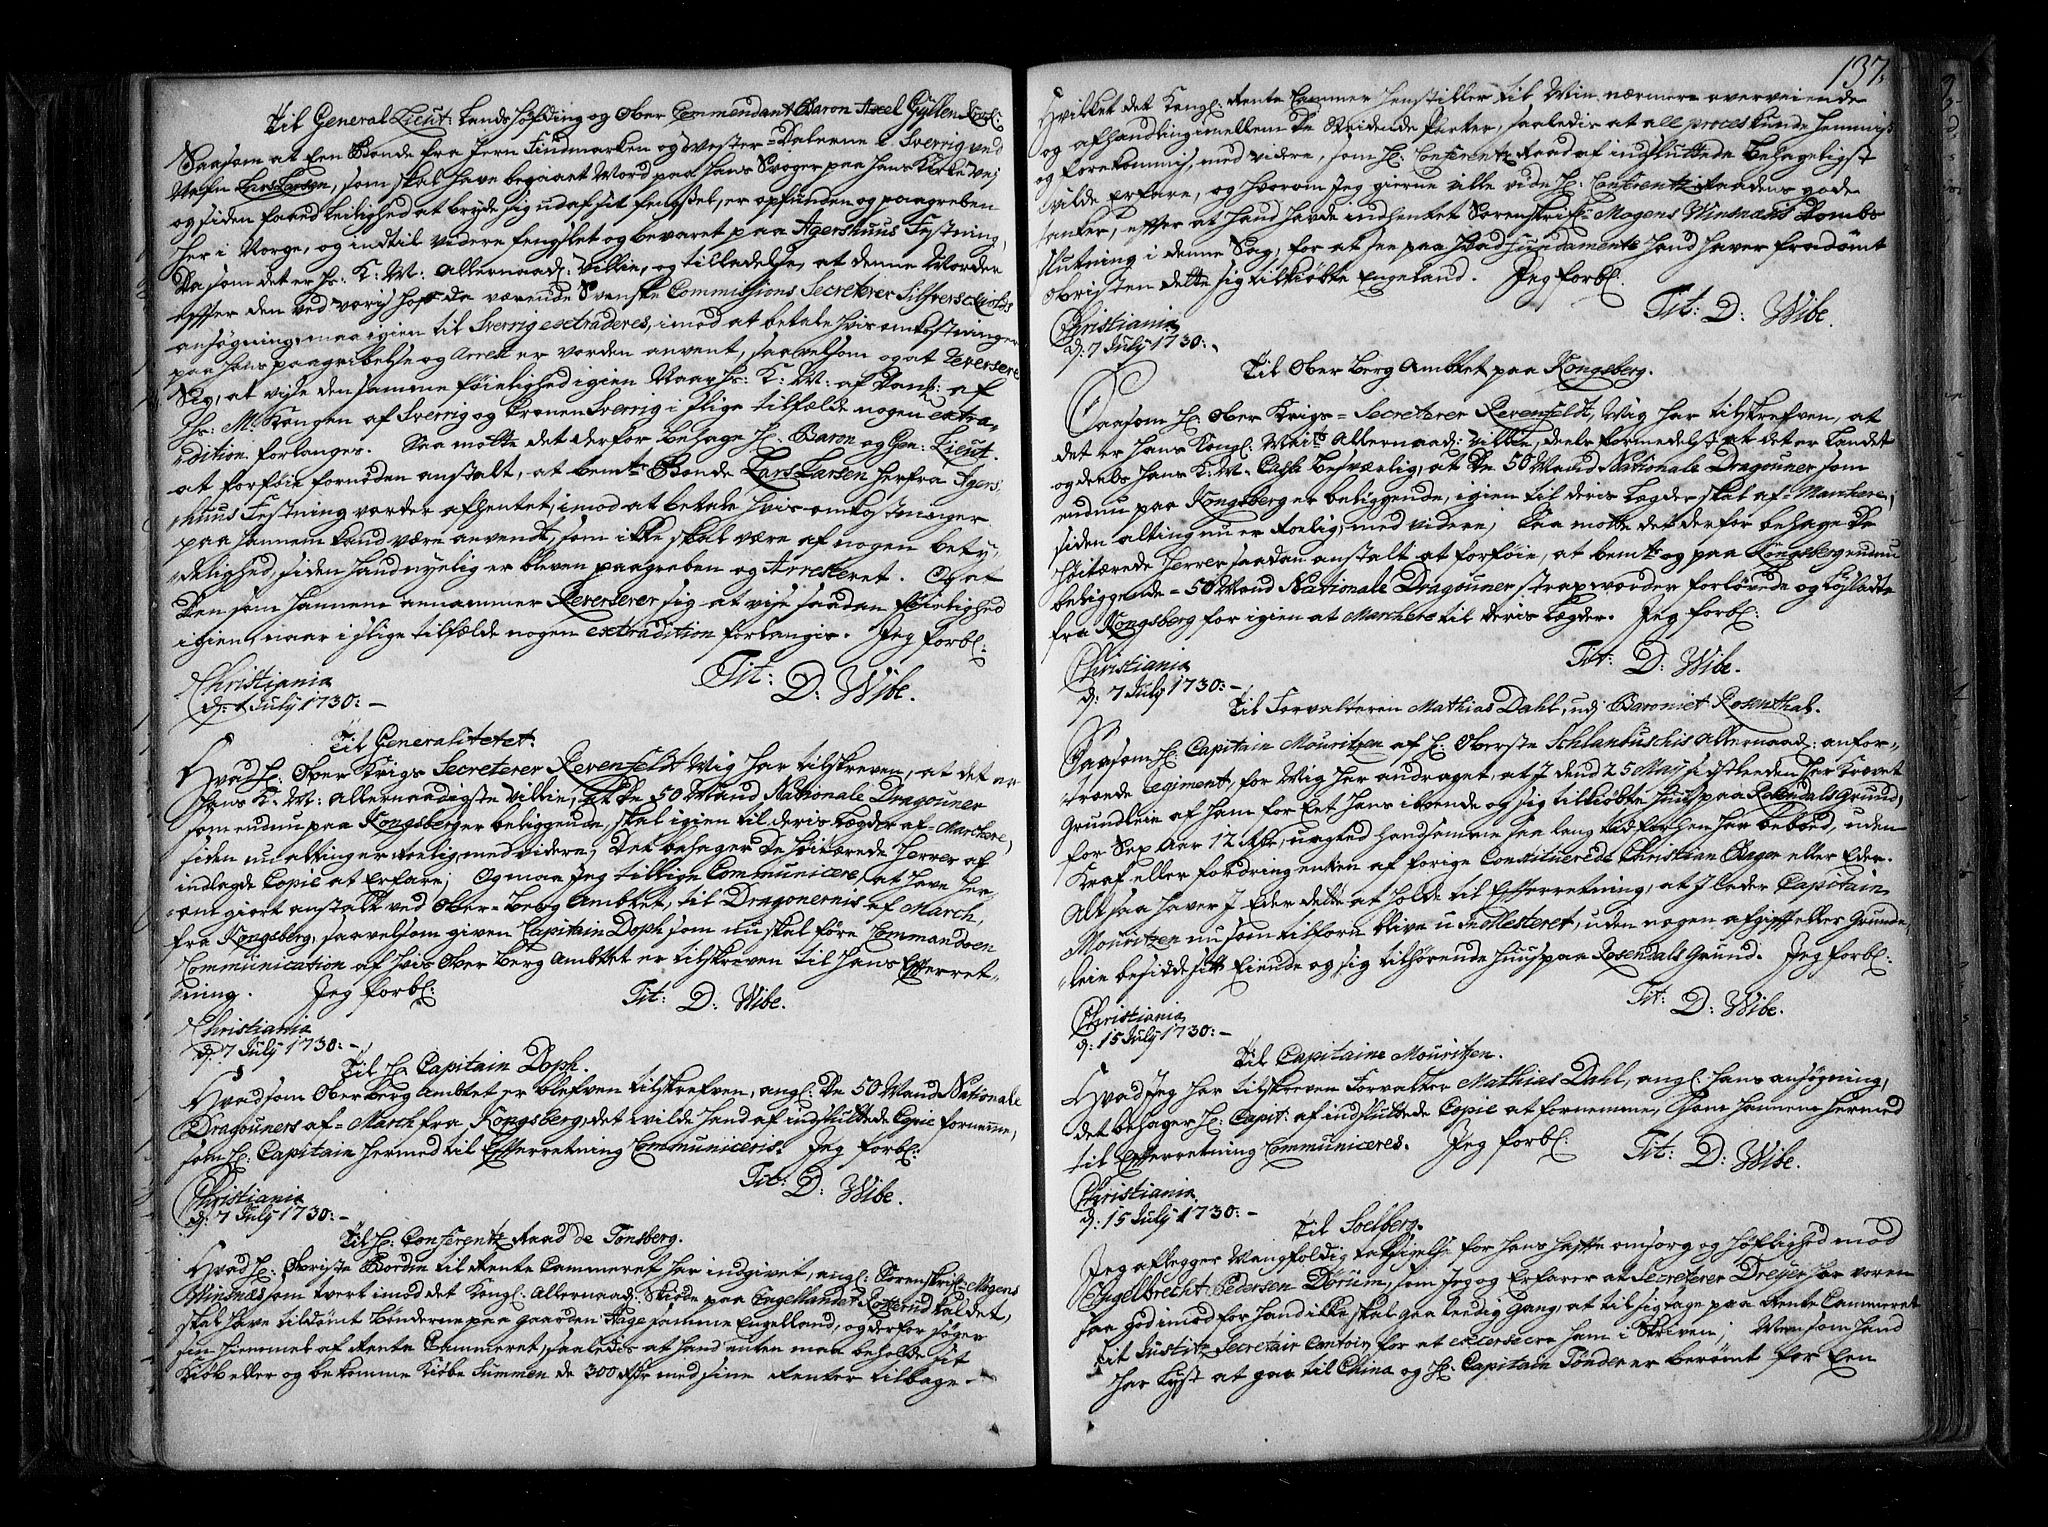 Til General Lieut: Landshöfding og Ober Commendant Baron Axel Gyllen
Saasom at Een Bonde fra Jern Findmarken og Wester-Dalerne i Sverrig ved
Nafn Lars Larsen, som skal have begaaet Mord paa hans Svoger paa hans Kirke vej
og siden faaed leilighed at bryde sig ud af sit fengsel, er opfunden og paagreben
her i Norge, og indtil videre fengslet og bevaret paa Agershuus Festning,
Da som det er Hs: K: M: allernaad: villie, og tilladelse, at denne Morder
effter den ved voris Hoff da værende Svenske Commissions Secreterer Silfverschiolds
ansögning, maa igien til Sverrig extraderes, imod at betale hvis omkostninger
paa hans paagribelse og Arrest er vorden anvent, saavelsom og at reversere
Sig, at vise den samme föielighed igien Naar Hs: K: M: af Dank: af
Hs: M: Kongen af Sverrig og Cronen Sverrig i slige tilfælde nogen extra-
dition forlanges. Saa motte det derfor behage Hr. Baron og Gen: Lieut.
at forföie fornöden anstalt, at bemte Bonde Lars Larsen herfra Agers
huus Festning vorder afhentet, imod at betale hvis omkostninger
paa hannem kand være anvendt, som ikke skal være af nogen bety-
delighed, siden hand nyelig er bleven paagreben og Arresteret. Og at
den som hannem annammer Reverserer sig at vise saadan föielighed
igien, naar i slige tilfælde nogen extradition forlangis. Jeg forbl:
Tit: D: Wibe.
Christiania
d: 1 July 1730:-
Til Generalitetet.
Hvad Hr: Ober Krigs Secreterer Revenfeldt Mig har tilskreven, at det er
Hans K: M: allernaadigste villie, at de 50 Mand Nationale Dragouner
som endnu paa Kongsberg er beliggende, skal igien til deris Legder af-Marchere,
siden nu alting er roelig med videre, det behager de höitærede Herrer af
indlagde Copie at Erfare; Og maa Jeg tillige Communicere, at have her-
om giort anstalt ved Ober-Berg Ambtet, til Dragonernis af March,
fra Kongsberg, saavelsom given Capitain Doph som nu skal före Commandoen
Communication af hvis Ober Berg Ambtet er tilskreven til hans Efterret-
ning. Jeg forbl:
Tit: D: Wibe.
Christiania
d: 7 July 1730:-
Til Hr Capitain Doph.
Hvad som Ober Berg Ambtet er blefven tilskrefven, angl: de 50 Mand Nationale
Dragouners af-March fra Kongsberg, det vilde hand af indsluttede Copie fornemme,
som Hr: Capitain hermed til Efterretning Communiceris. Jeg forbl:
Tit: D: Wibe.
Christiania
d: 7 July 1730:-
Til Hr: Conferentz Raad de Tonsberg.
Hvad Hr: Obriste Bordin til Rente Cammeret har indgivet, angl: Sorenskrifr Mogens
Winsnæs som tvert imod det Kongl: Allernaad: Skiöde paa Engellandet Kotterud kaldet,
skal have tildömt Bönderne paa gaarden Hage samme Engelland, og derfor söger
sin hiemmel af Rente Cammeret, saaledis at hand enten maa beholde sit
Kiöb eller og bekomme Kiöbe Summen de 300 Rdr med sine Renter tilbage -
137.
Hvilket det Kongl: Rente Cammer henstiller til Min nærmere overveiende
og afhandling imellem de stridende Parter, saaledis at all proces kunde hemmis
og forekommis, med videre, som Hr: Conferentz Raad af indsluttede behageligst
vilde erfare, og hvorom Jeg gierne ville vide Hr: Conferentz Raadens gode
tanker, effter at hand havde indhentet Sorenskrifr Mogens Winsnæsis Dombs
slutning i denne Sag, for at see paa hvad fundamente hand haver fradömt
Obristen dette sig tilkiöbte Engeland. Jeg forbl:
Tit: D: Wibe.
Christiania
d: 7 July 1730:-
Til Ober Berg Ambtet paa Kongsberg.
Saasom Hr Ober Krigs-Secreterer Revenfeldt, Mig har tilskrefven, at
det er Hans Kongl: Maits Allernaad: villie, deels formedelst at det er Landet
og deels Hans K: M: Casse besværlig, at de 50 Mand Nationale Dragouner som
endnu paa Kongsberg er beliggende, igien til deris Legder skal af-Marchere,
siden alting nu er roelig, med videre; Saa motte det derfor behage de
höitærede Herrer saadan anstalt at forföie, at bemte og paa Kongsberg endnu
beliggende-50 Mand Nationale Dragouner strax vorder forlövede og löslatte
fra Kongsberg for igien at Marchere til deris Legder. Jeg forbl:
Tit: D: Wibe.
Christiania
d: 7 July 1730:-
Til Forvalteren Mathias Dahl, udj Baroniet Rosenthal.
Saasom Hr: Capitain Mouritzen af Hr: Oberste Schlanbuschis allernaad: anfor-
troede Regiment, for Mig her andraget, at I dend 25 Maij sidstleeden har Krevet
Grundleie af ham for Eet hans iboende og sig tilkiöbte huus paa Rosendals Grund,
for Sex Aar 12 Rdr, uagted hand samme saa lang tid forhen har beboed, uden
Kraf eller fordring enten af forige Constituerede Christian Bager eller Eder.
Alt saa haver I Eder dette at holde til Efterretning, at I lader Capitain
Mouritzen nu som tilforn blive u indlesteret, uden nogen afgifft eller Grunde,
leie besidde sit Eiende og sig tilhörende huus paa Rosendals Grund. Jeg forbl:
Tit: D: Wibe.
Christiania
d: 15 July 1730:-
Til Capitaine Mouritzen.
Hvad Jeg har tilskreven Forvalter Mathias Dahl, angl: hans ansögning,
det behager Hr: Capit: af indsluttede Copie at fornemme, som hannem hermed
til Efterretning Communiceres. Jeg forbl:
Tit: D: Wibe.
Christiania
d: 15 July 1730:-
Til Soelberg.
Jeg aflegger Mangfoldig taksigelse for hans hafte omsorg og höflighed mod
Engelbrecht Pedersen Dorum, som Jeg og Erfarer at Secreterer Dreyer har voren
saa god imod for hand ikke skal gaa leedig gang, at tilsigtage paa Rente Cammeret
tit Justitz Secretair Cantoir for at excersere ham i Skriven; Men som hand
har lyst at gaa til China og Hr: Capitain Tönder er berömt for Een